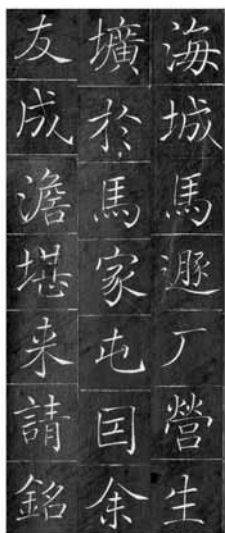 海城馬遯厂營生
壙於馬家屯囙余
友成澹堪来請銘